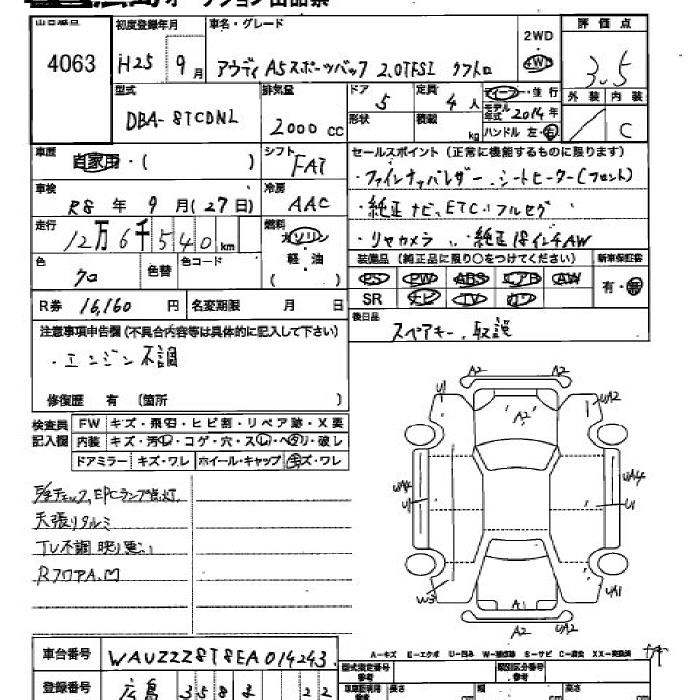 オークション出品票
出品番号 初度登録年月 車名・グレード 評価点
4063 H25 9月 アウディ A5スポーツバック 2.0TFSI クワトロ 2WD 4WD 3.5
型式 排気量 ドア 定員 外装 内装
DBA-8TCDNL 2000 CC 5 4人 ディーラー・並行
形状 積載 kg モデル年式 2014年 C
ハンドル 左・右
車歴 自家用・( ) シフト FAT セールスポイント(正常に機能するものに限ります)
・ファインナッパレザー、シートヒーター(フロント)
車検 R8年 9月(27日) 冷房 AAC ・純正ナビ、ETC、フルセグ
走行 12万6千540km 燃料 ガソリン 軽油 ( ) ・リヤカメラ、・純正18インチAW
色 クロ 色替 色コード 装備品(純正品に限り○をつけてください) 新車保証書
PS PW ABS エアB AW 有・無
R券 16,160円 名変期限 月 日 SR ナビ TV カワ
後日品 スペアキー、取説
注意事項申告欄(不具合内容等は具体的に記入して下さい)
・エンジン不調
修復歴 有 (箇所 )
検査員記入欄 FW キズ・飛石・ヒビ割・リペア跡・X要
内装 キズ・汚レ・コゲ・穴・スレ・ヘタリ・破レ
ドアミラー キズ・ワレ ホイール・キャップ キズ・ワレ
チェック、EPCランプ点灯
天張リタルミ
TV不調 映り悪い
RフロアA.凹
A2
U1 A2 UA2
UA4 U1 U1 UA4
W3 A1 UA1
A2 A2
A-キズ E-エクボ U-凹み W-補修跡 S-サビ C-腐食 XX-交換済
車台番号 WAUZZZ8T8EA014243
型式指定番号 類別区分番号
登録番号 広島 358
参考 長さ cm 幅 cm 高さ cm